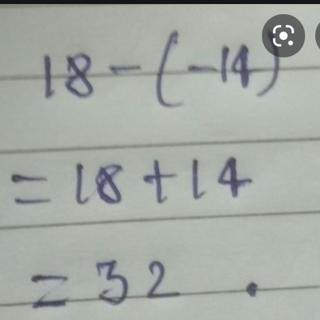 18-(-14)
= 18+14
= 32 .